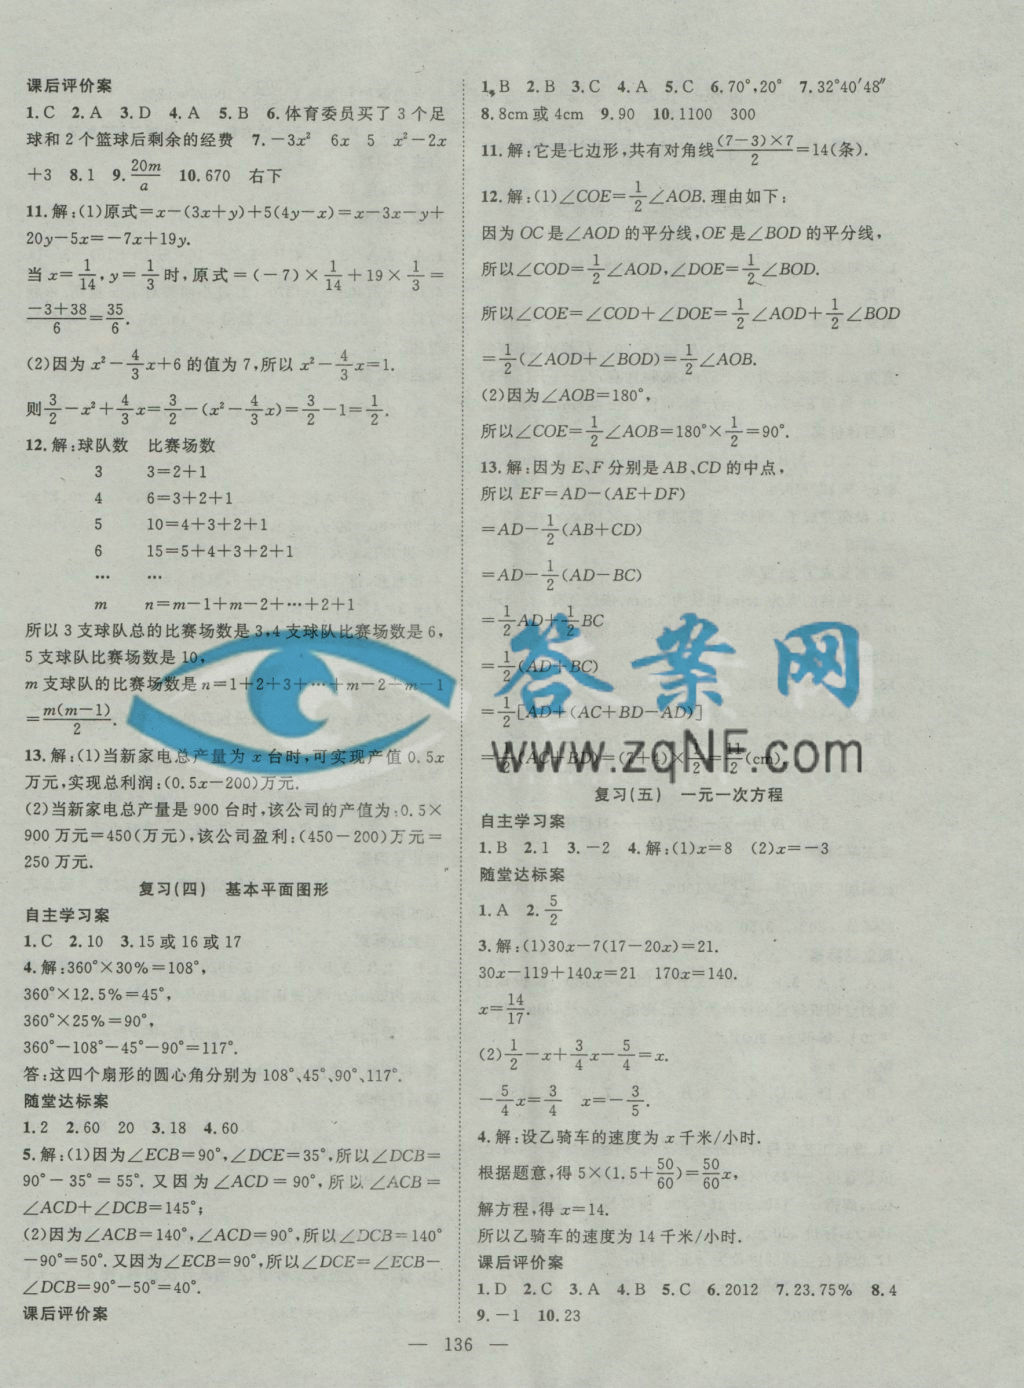 课后评价案
1.C 2.A 3.D 4.A 5.B 6.体育委员买了3个足
球和2个篮球后剩余的经费 7.-3x² 6x 5 x²-2x
+3 8.1 9.20m/a 10.670 右下
11.解:(1)原式=x-(3x+y)+5(4y-x)=x-3x-y+
20y-5x=-7x+19y.
当x=1/14,y=1/3时,原式=(-7)×1/14+19×1/3=
(-3+38)/6=35/6.
(2)因为x²-4/3x+6的值为7,所以x²-4/3x=1.
则3/2-x²+4/3x=3/2-(x²-4/3x)=3/2-1=1/2.
12.解:球队数 比赛场数
3 3=2+1
4 6=3+2+1
5 10=4+3+2+1
6 15=5+4+3+2+1
… …
m n=m-1+m-2+…+2+1
所以3支球队总的比赛场数是3,4支球队比赛场数是6,
5支球队比赛场数是10,
m支球队的比赛场数是n=1+2+3+…+m-2+m-1
=m(m-1)/2.
13.解:(1)当新家电总产量为x台时,可实现产值0.5x
万元,实现总利润:(0.5x-200)万元.
(2)当新家电总产量是900台时,该公司的产值为:0.5×
900万元=450(万元),该公司盈利:(450-200)万元=
250万元.
复习(四) 基本平面图形
自主学习案
1.C 2.10 3.15或16或17
4.解:360°×30%=108°,
360°×12.5%=45°,
360°×25%=90°,
360°-108°-45°-90°=117°.
答:这四个扇形的圆心角分别为108°、45°、90°、117°.
随堂达标案
1.2 2.60 20 3.18 4.60
5.解:(1)因为∠ECB=90°,∠DCE=35°,所以∠DCB=
90°-35°=55°.又因为∠ACD=90°,所以∠ACB=
∠ACD+∠DCB=145°;
(2)因为∠ACB=140°,∠ACD=90°,所以∠DCB=140°
-90°=50°.又因为∠ECB=90°,所以∠DCE=∠ECB-
∠DCB=90°-50°=40°.
课后评价案
1.B 2.B 3.C 4.A 5.C 6.70°,20° 7.32°40′48″
8.8cm或4cm 9.90 10.1100 300
11.解:它是七边形,共有对角线(7-3)×7/2=14(条).
12.解:(1)∠COE=1/2∠AOB.理由如下:
因为OC是∠AOD的平分线,OE是∠BOD的平分线,
所以∠COD=1/2∠AOD,∠DOE=1/2∠BOD.
所以∠COE=∠COD+∠DOE=1/2∠AOD+1/2∠BOD
=1/2(∠AOD+∠BOD)=1/2∠AOB.
(2)因为∠AOB=180°,
所以∠COE=1/2∠AOB=180°×1/2=90°.
13.解:因为E、F分别是AB、CD的中点,
所以EF=AD-(AE+DF)
=AD-1/2(AB+CD)
=AD-1/2(AD-BC)
=1/2AD+1/2BC
=1/2(AD+BC)
=1/2[AD+(AC+BD-AD)]
=1/2(AC+BD)=(7+4)×1/2=11/2(cm).
答案网
www.zqNF.com
复习(五) 一元一次方程
自主学习案
1.B 2.1 3.-2 4.解:(1)x=8 (2)x=-3
随堂达标案
1.A 2.5/2
3.解:(1)30x-7(17-20x)=21.
30x-119+140x=21 170x=140.
x=14/17.
(2)1/2-x+3/4x-5/4=x.
-5/4x=3/4 x=-3/5.
4.解:设乙骑车的速度为x千米/小时.
根据题意,得5×(1.5+50/60)=50/60x,
解方程,得x=14.
所以乙骑车的速度为14千米/小时.
课后评价案
1.D 2.C 3.A 4.B 5.C 6.2012 7.23.75% 8.4
9.-1 10.23
— 136 —